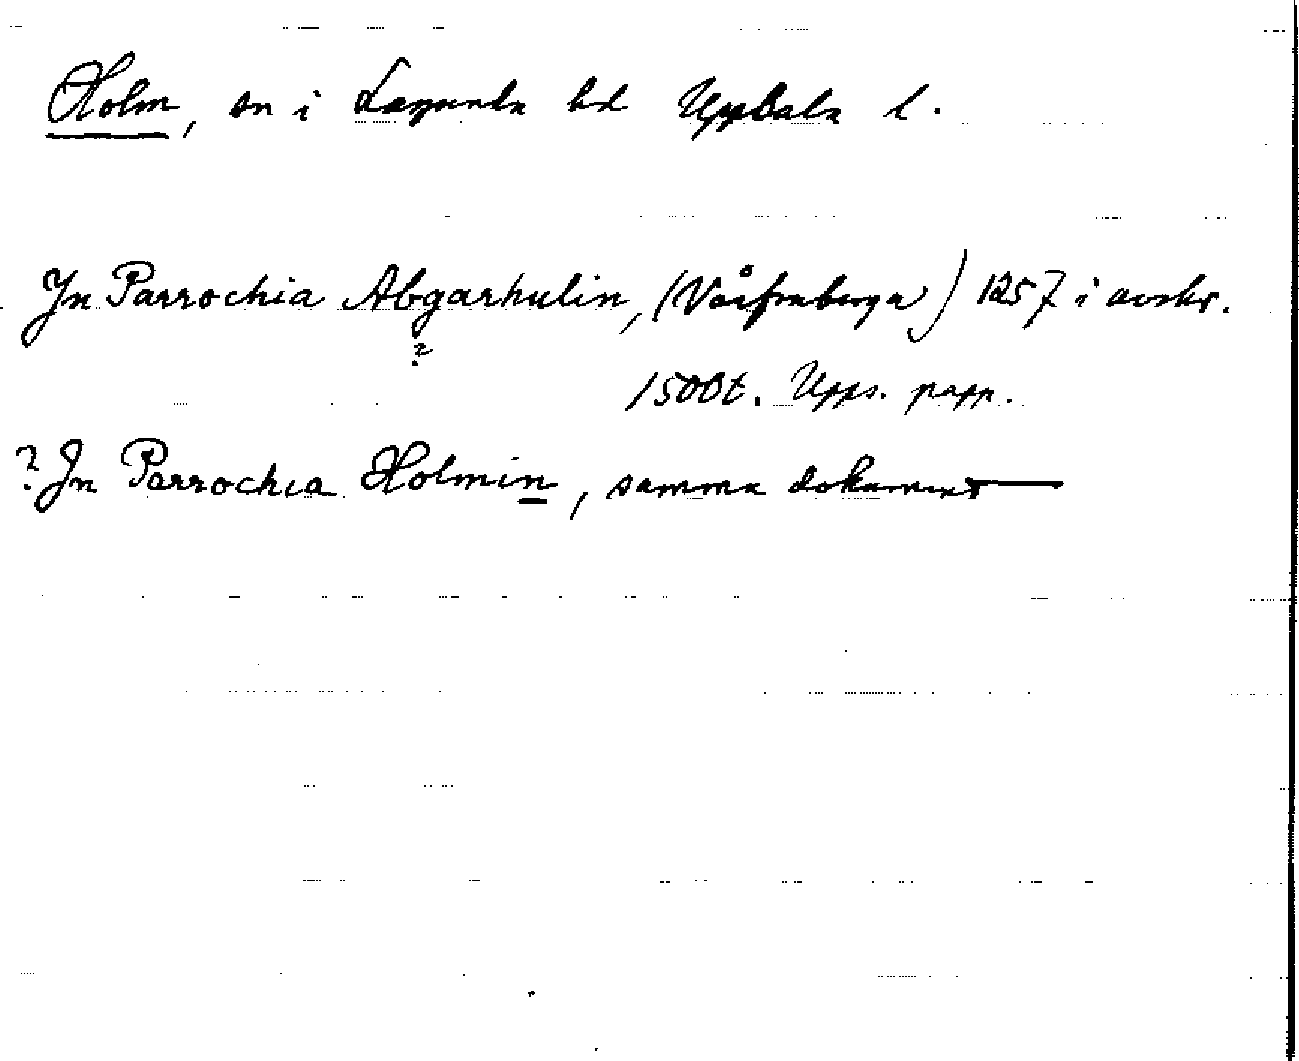 Holm, sn i Lagunda hd Uppsala l.
In Parrochia Abgarhulin, (Våfraberga) 1257 i avskr.
?
1500t. Upps. papp.
? In Parrochia Holmin, samma dokument